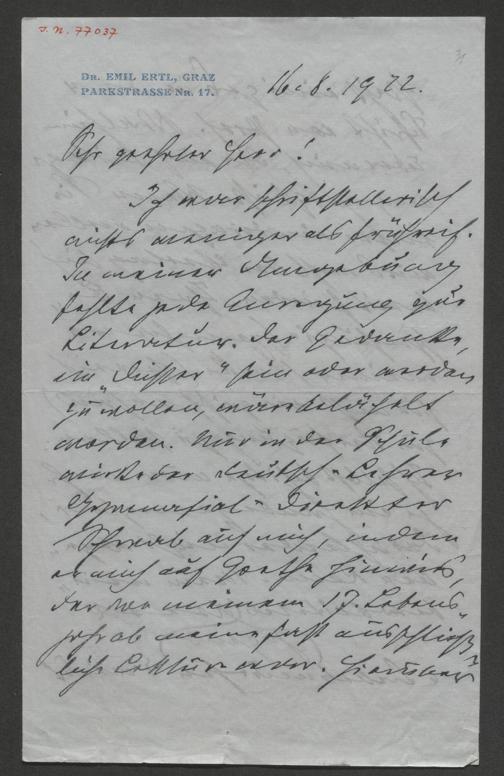 J. N. 77037
Dr. EMIL ERTL, GRAZ
PARKSTRASSE Nr. 17.
16. 8. 1922.
Sehr geehrter Herr!
Ich war schriftstellerisch
nichts weniger als frühreif.
In meiner Umgebung
fehlte jede Anregung zur
Literatur. Der Gedanke,
ein „Dichter“ sein oder werden
zu wollen, wäre belächelt
worden. Nur in der Schule
wirkte der Deutsch-Lehrer
Gymnasial-Direktor
Schwab auf mich, indem
er mich auf Goethe hinwies,
der von meinem 17. Lebens-
jahr ab meine fast ausschließ-
liche Lektüre war.